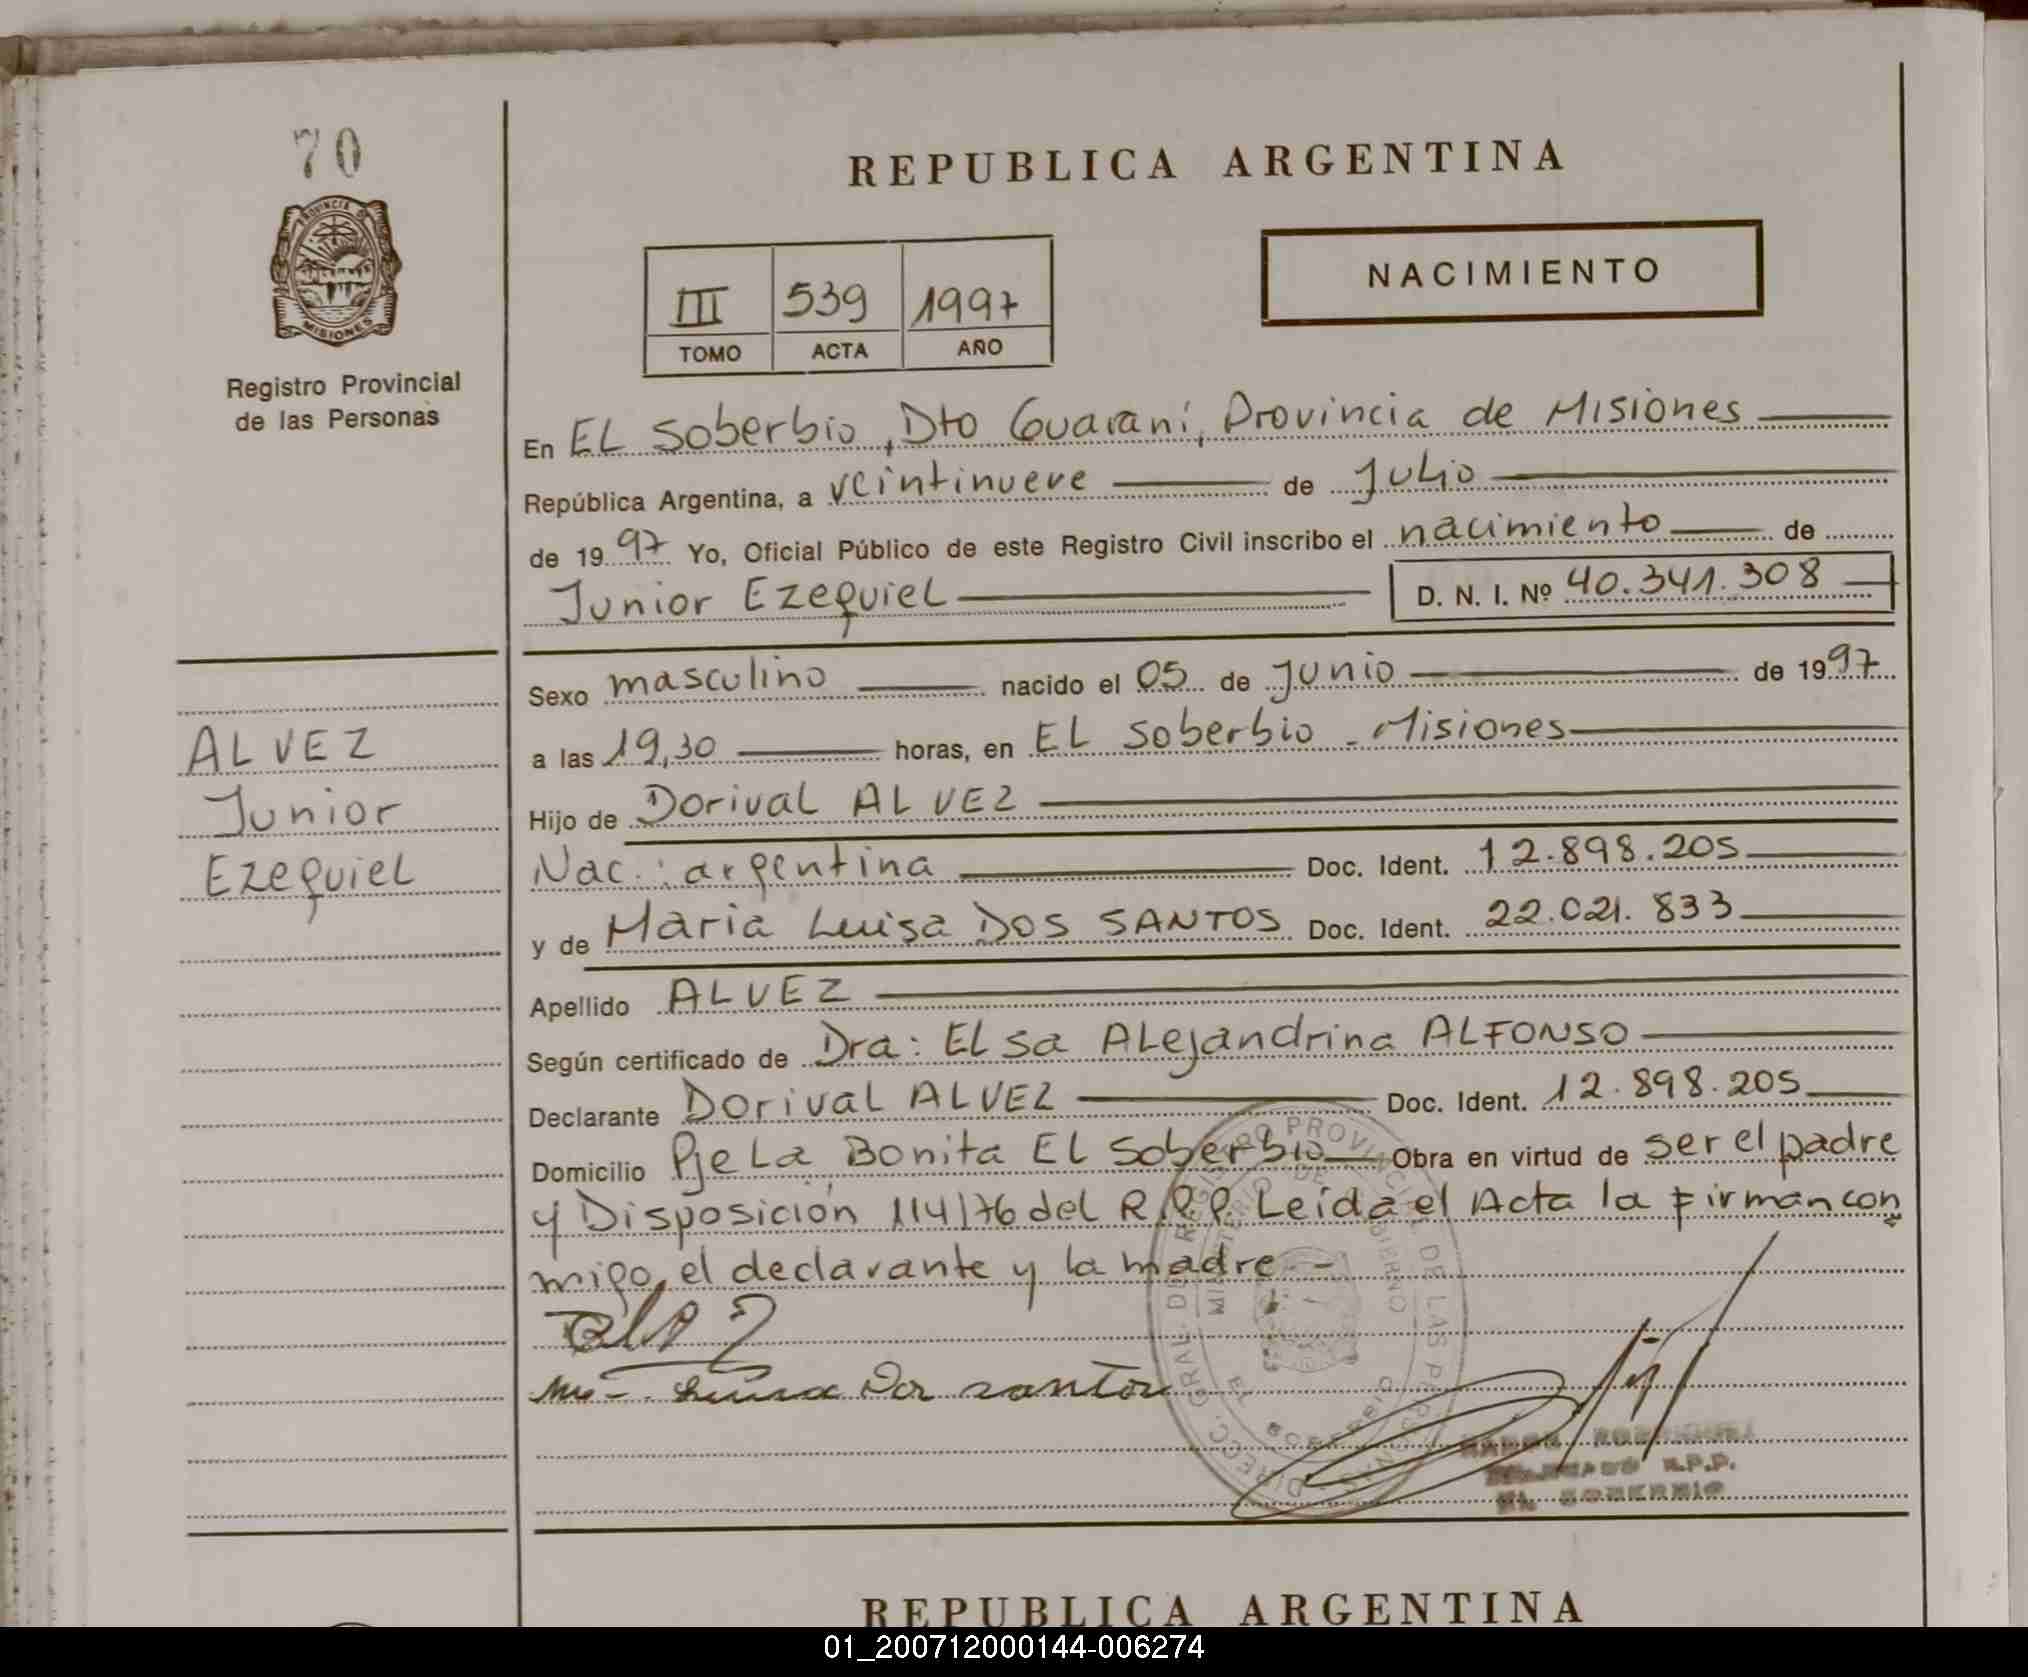 70
PROVINCIA DE
MISIONES
Registro Provincial
de las Personas
REPUBLICA ARGENTINA
III 539 1997
TOMO ACTA AÑO
NACIMIENTO
En EL Soberbio, Dto Guaraní, Provincia de Misiones
República Argentina, a veintinueve de Julio
de 1997 Yo, Oficial Público de este Registro Civil inscribo el nacimiento de
Junior Ezequiel D. N. I. Nº 40.341.308
Sexo masculino nacido el 05 de junio de 1997
a las 19,30 horas, en EL Soberbio - Misiones
Hijo de Dorival ALVEZ
Nac.: argentina Doc. Ident. 12.898.205
y de Maria Luisa DOS SANTOS Doc. Ident. 22.021.833
Apellido ALVEZ
Según certificado de Dra: Elsa Alejandrina ALFONSO
Declarante Dorival ALVEZ Doc. Ident. 12.898.205
Domicilio Pje La Bonita EL Soberbio Obra en virtud de ser el padre
y Disposición 114/76 del R.P.P. Leída el Acta la firman con
migo, el declarante y la madre.-
Luisa Dos santos
R.P.P.
EL SOBERBIO
DIRECC. GRAL. DEL REGISTRO PROVINCIAL DE LAS PERSONAS
MINISTERIO DE GOBIERNO
EL SOBERBIO
ALVEZ
Junior
Ezequiel
REPUBLICA ARGENTINA
01_200712000144-006274